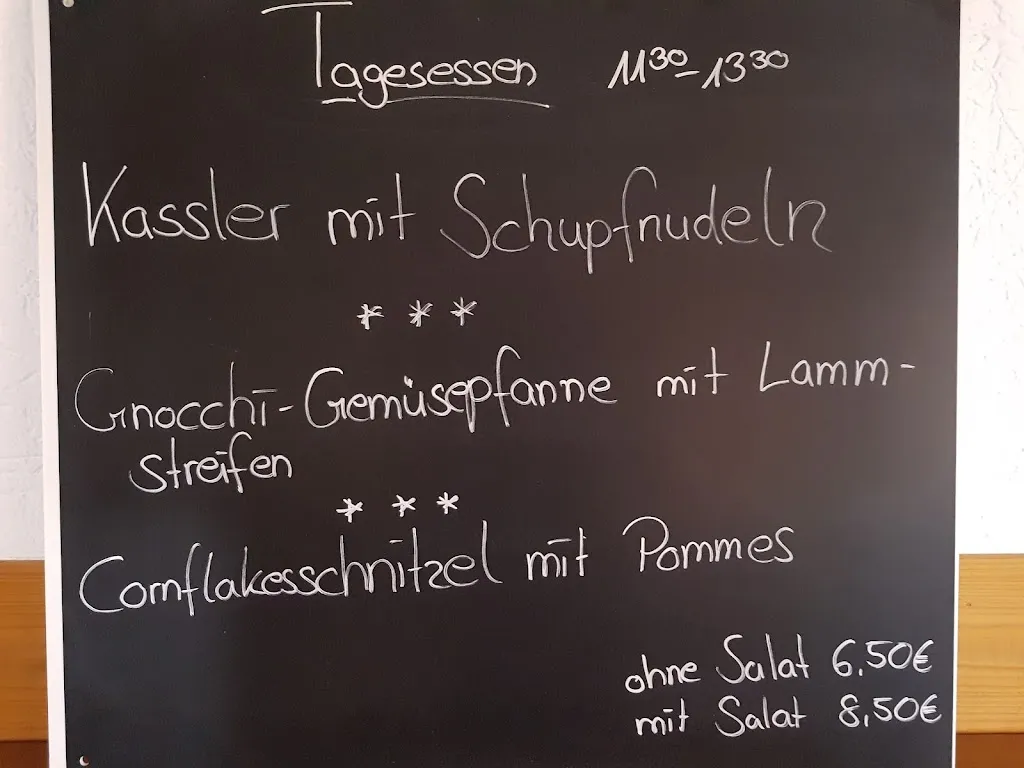 Tagesessen 11³⁰-13³⁰
Kassler mit Schupfnudeln
* * *
Gnocchi-Gemüsepfanne mit Lamm-
streifen
* * *
Cornflakesschnitzel mit Pommes
ohne Salat 6,50€
mit Salat 8,50€